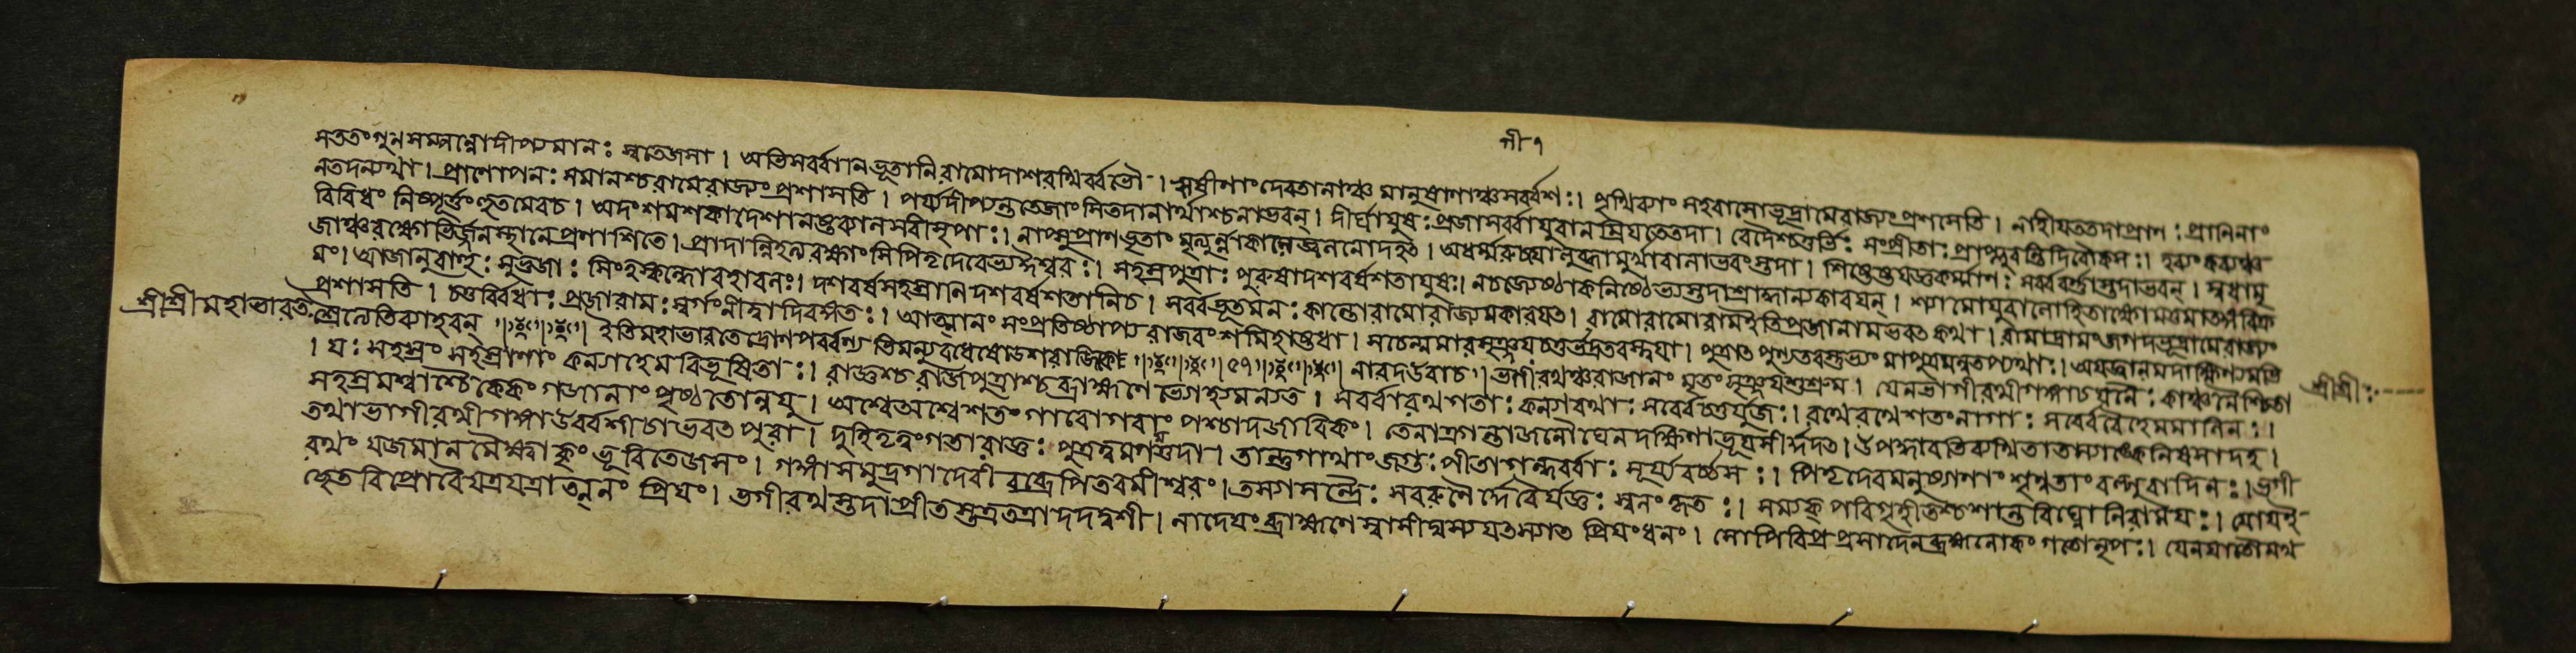 সততং গুনসমপন্নোদীপ্যমানঃ স্বতেজসা । অতিসর্ব্বানিভূতানিরামোদাশরথির্ব্বভৌ । ঋষীণাংদেবতানাঞ্চ মানুষাণাঞ্চসর্ব্বশঃ । পৃথিব্যাং সহবাসোভূদ্রামেরাজ্যংপ্রশাসতি । নাহীযততদাপ্রাণঃ প্রানিনাং
নতদন্যথা । প্রাণোপানঃ সমানশ্চরামেরাজ্যংপ্রশাসতি । পর্য্যদীপ্যন্ততেজাংসিতদানার্থাশ্চনাভবন্ । দীর্ঘাযুষঃ প্রজাসর্ব্বাযুবানম্রিযতেতদা । বেদৈশ্চতুর্ভিঃ সংপ্রীতাঃ প্রাপ্নুবন্তিদিবৌকসঃ । হব্যংকব্যঞ্চ
বিবিধং নিষ্পূর্ত্তংহুতমেবচ । অদংশমশকাদেশানষ্টব্যালসরীসৃপাঃ । নাপ্সুপ্রাণভৃতাং মৃত্যুর্ন্নাকালেজ্বলনোদহৎ । অধর্ম্মরুচযোলুব্ধামূর্খাবানাভবংস্তদা । শিষ্টেষ্টযজ্ঞকর্ম্মাণঃ সর্ব্ববর্ণাস্তদাভবন্ । স্বধামূ
জাঞ্চরক্ষোভির্জ্জনস্থানেপ্রণাশিতে । প্রাদান্নিহত্যরক্ষাংসিপিতৃদেবেভ্যঈশ্বরঃ । সহস্রপুত্রাঃ পুরুষাদশবর্ষশতাযুষঃ । নচজ্যেষ্ঠাকনিষ্ঠেভ্যস্তদাশ্রাদ্ধান্যকারযন্ । শ্যামোযুবালোহিতাক্ষোমত্তমাতঙ্গবিক্র
মঃ । আজানুবাহুঃ সুভুজাঃ সিংহস্কন্ধোমহাবলঃ । দশবর্ষসহস্রানিদশবর্ষশতানিচ । সর্ব্বভূতমনঃ কান্তোরামোরাজ্যমকারযৎ । রামোরামোরামইতিপ্রজানামভবৎকথা । রামাদ্রামংজগদভূদ্রামেরাজ্যং
প্রশাসতি । চতুর্ব্বিধাঃ প্রজারামঃ স্বর্গংনীত্বাদিবঙ্গতঃ । আত্মানং সংপ্রতিষ্ঠাপ্য রাজবংশমিহাষ্টধা । সচেন্মমারসৃঞ্জযচতুর্ভদ্রতরস্ত্বযা । পুত্রাৎ পুণ্যতরস্তুভ্যং মাপুত্রমনুতপ্যথাঃ । অযজ্বানমদাক্ষিণ্যমভি
শ্রীশ্রীমহাভারত
শ্বৈত্যেতিব্যাহরন্ ইতিমহাভারতেদ্রোণপর্ব্বন্যভিমন্যুবধেষোডশরাজিকে ৫৭ নারদউবাচ । ভগীরথঞ্চরাজানং মৃতং সৃঞ্জযশুশ্রুম । যেনভাগীরথীগঙ্গাচযনৈঃ কাঞ্চনৈশ্চিতা
শ্রীশ্রীঃ
। যঃ সহস্রং সহস্রাণাং কন্যাহেমবিভূষিতাঃ । রাজ্ঞশ্চরাজপুত্রাশ্চব্রাহ্মণেভ্যোহ্যমন্যত । সর্ব্বারথগতাঃ কন্যারথাঃ সর্ব্বেচতুর্যুজঃ । রথেরথেশতংনাগাঃ সর্ব্বেবৈহেমমালিনঃ ।
সহস্রমশ্বাশ্চৈকৈকং গজানাং পৃষ্ঠতোন্বযু । অশ্বেঅশ্বেশতং গাবোগবাং পশ্চাদজাবিকং । তেনাত্রগন্তাজনৌঘেনদক্ষিণাভূযসীর্দ্দদৎ । উপহ্বরেতিব্যথিতাতস্যাঙ্কেনিষসাদহ ।
তথাভাগীরথীগঙ্গাউর্ব্বশীচাভবৎ পুরা । দুহিতৃত্বংগতারাজ্ঞঃ পুত্রত্বমগমত্তদা । তান্তুগাথাংজগুঃ পীতাগন্ধর্ব্বাঃ সূর্য্যবর্চ্চসঃ । পিতৃদেবমনুষ্যাণাং শৃন্বতাংবল্গুবাদিনঃ । ভগী
রথং যজমানমৈক্ষ্বাকুং ভূরিতেজসং । গঙ্গাসমুদ্রগাদেবীবব্রেপিতরমীশ্বরং । তস্যসেন্দ্রৈঃ সবরুণৈর্দ্দেবৈর্যজ্ঞঃ স্বলংকৃতঃ । সম্যক্ পরিগৃহীতশ্চশান্তবিঘ্নোনিরামযঃ । যোযই
চ্ছেতবিপ্রোবৈযত্রযত্রাত্মনং প্রিযং । ভগীরথস্তদাপ্রীতস্তত্রতত্রাদদদ্বশী । নাদেযংব্রাহ্মণেস্বাসীদ্যস্যযৎস্যাত প্রিযংধনং । সোপিবিপ্রপ্রসাদেনব্রহ্মলোকং গতোনৃপঃ । যেনযাতৌমখ